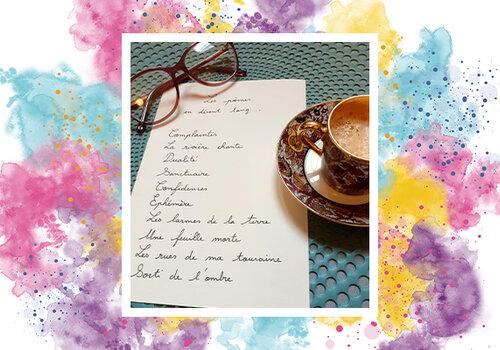 Les poèmes
en disent long...
Complaintes
La rivière chante
Dualité
Sanctuaire
Confidences
Ephémère
Les larmes de la terre
Une feuille morte
Les rues de ma touraine
Sorti de l'ombre